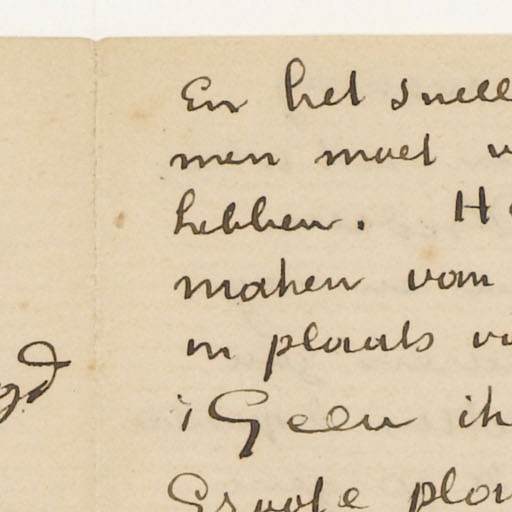 En het snell
men moet
hebben. H
maken van
in plaats
Geen ik
Groote pla
gd